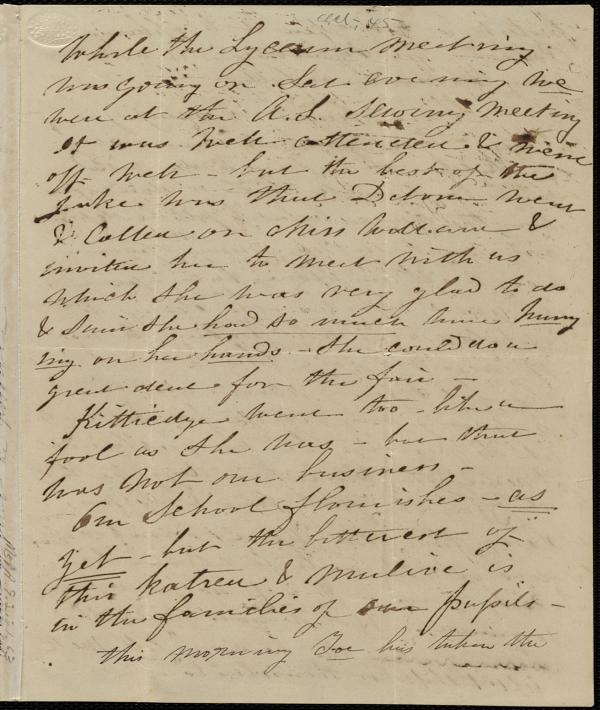 Oct, 45
While the Lyceum meeting
was going on Sat evening we
were at the A.S. sewing meeting
It was well attended & went
off well - but the best of the
joke was that Deborah went
& Called on Miss &
invited her to meet with us
which she was very glad to do
& said she had so much time hang
ing on her hands - she could do a
great deal for the fair -
Kittredge went too - like a
fool as she was - but that
was not our business -
Our School flourishes - as
yet - but the bitterest of
this hatred & malice is
in the families of our pupils -
this morning has taken the